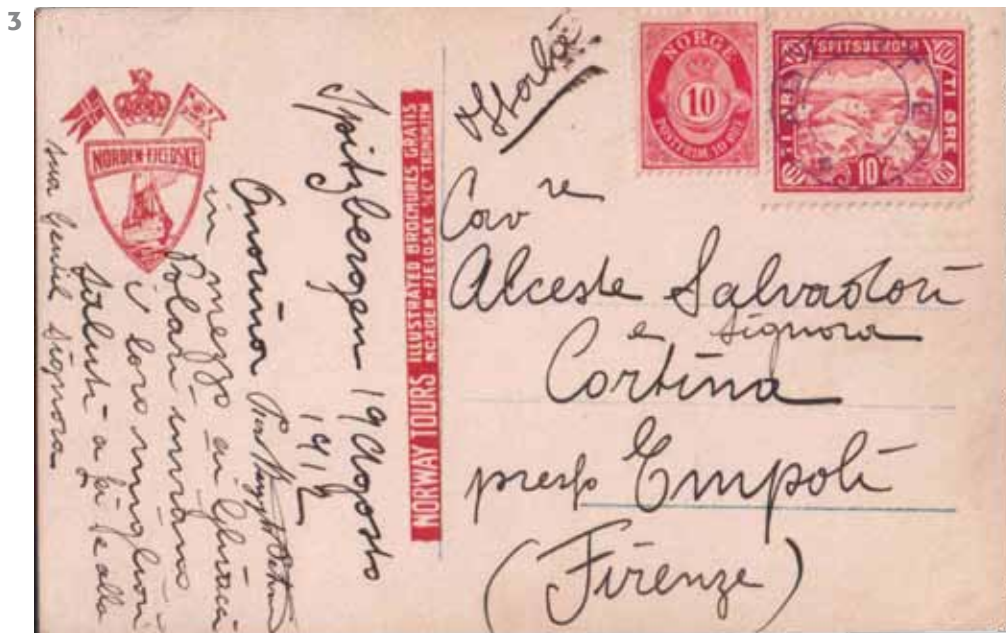 3
NORDEN-FJELDSKE
Spitzbergen 19 Agosto
1912
Onorina
in mezzo ai Ghiacci
Polari inviano
i loro migliori
saluti a Lei e alla
sua Gentil Signora
NORWAY TOURS
ILLUSTRATED BROCHURES GRATIS
NORDEN-FJELDSKE
Italia
NORGE
10
POSTFRIM. 10 ØRE
SPITSBERGEN
TI ØRE
10
Cav re
Alceste Salvadori
e Signora
Cortina
presso Empoli
(Firenze)